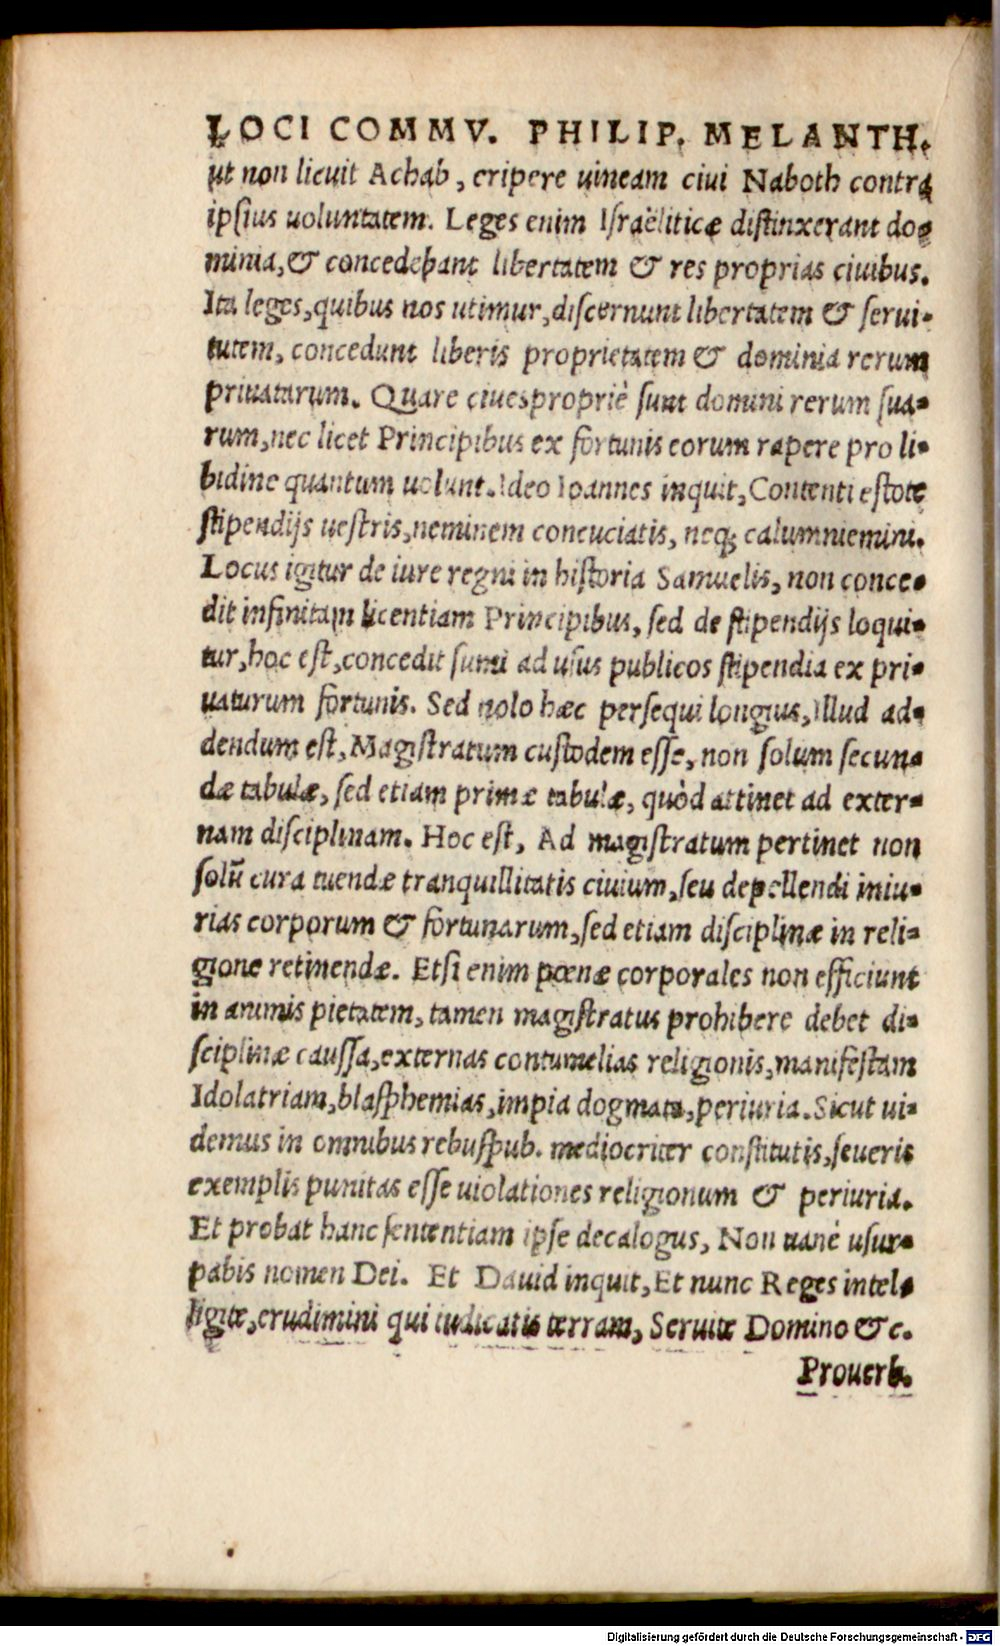 LOCI COMMV. PHILIP. MELANTH.
ut non licuit Achab, eripere uineam ciui Naboth contra
ipsius uoluntatem. Leges enim Israëliticæ distinxerant do-
minia, & concedebant libertatem & res proprias ciuibus.
Ita leges, quibus nos utimur, discernunt libertatem & serui-
tutem, concedunt liberis proprietatem & dominia rerum
priuatarum. Quare ciues propriè sunt domini rerum sua-
rum, nec licet Principibus ex fortunis eorum rapere pro li-
bidine quantum uolunt. Ideo Ioannes inquit, Contenti estote
stipendijs uestris, neminem concuciatis, neq; calumniemini.
Locus igitur de iure regni in historia Samuelis, non conce-
dit infinitam licentiam Principibus, sed de stipendijs loqui-
tur, hoc est, concedit sumi ad usus publicos stipendia ex pri-
uaturum fortunis. Sed nolo hæc persequi longius, Illud ad-
dendum est, Magistratum custodem esse, non solum secun-
dæ tabulæ, sed etiam primæ tabulæ, quòd attinet ad exter-
nam disciplinam. Hoc est, Ad magistratum pertinet non
solũ cura tuendæ tranquillitatis ciuium, seu depellendi iniu-
rias corporum & fortunarum, sed etiam disciplinæ in reli-
gione retinendæ. Etsi enim pœnæ corporales non efficiunt
in animis pietatem, tamen magistratus prohibere debet di-
sciplinæ caussa, externas contumelias religionis, manifestam
Idolatriam, blasphemias, impia dogmata, periuria. Sicut ui-
demus in omnibus rebuspub. mediocriter constitutis, seueris
exemplis punitas esse uiolationes religionum & periuria.
Et probat hanc sententiam ipse decalogus, Non uanè usur-
pabis nomen Dei. Et Dauid inquit, Et nunc Reges intel-
ligite, erudimini qui iudicatis terram, Seruite Domino &c.
Prouerb.
Digitalisierung gefördert durch die Deutsche Forschungsgemeinschaft - DFG